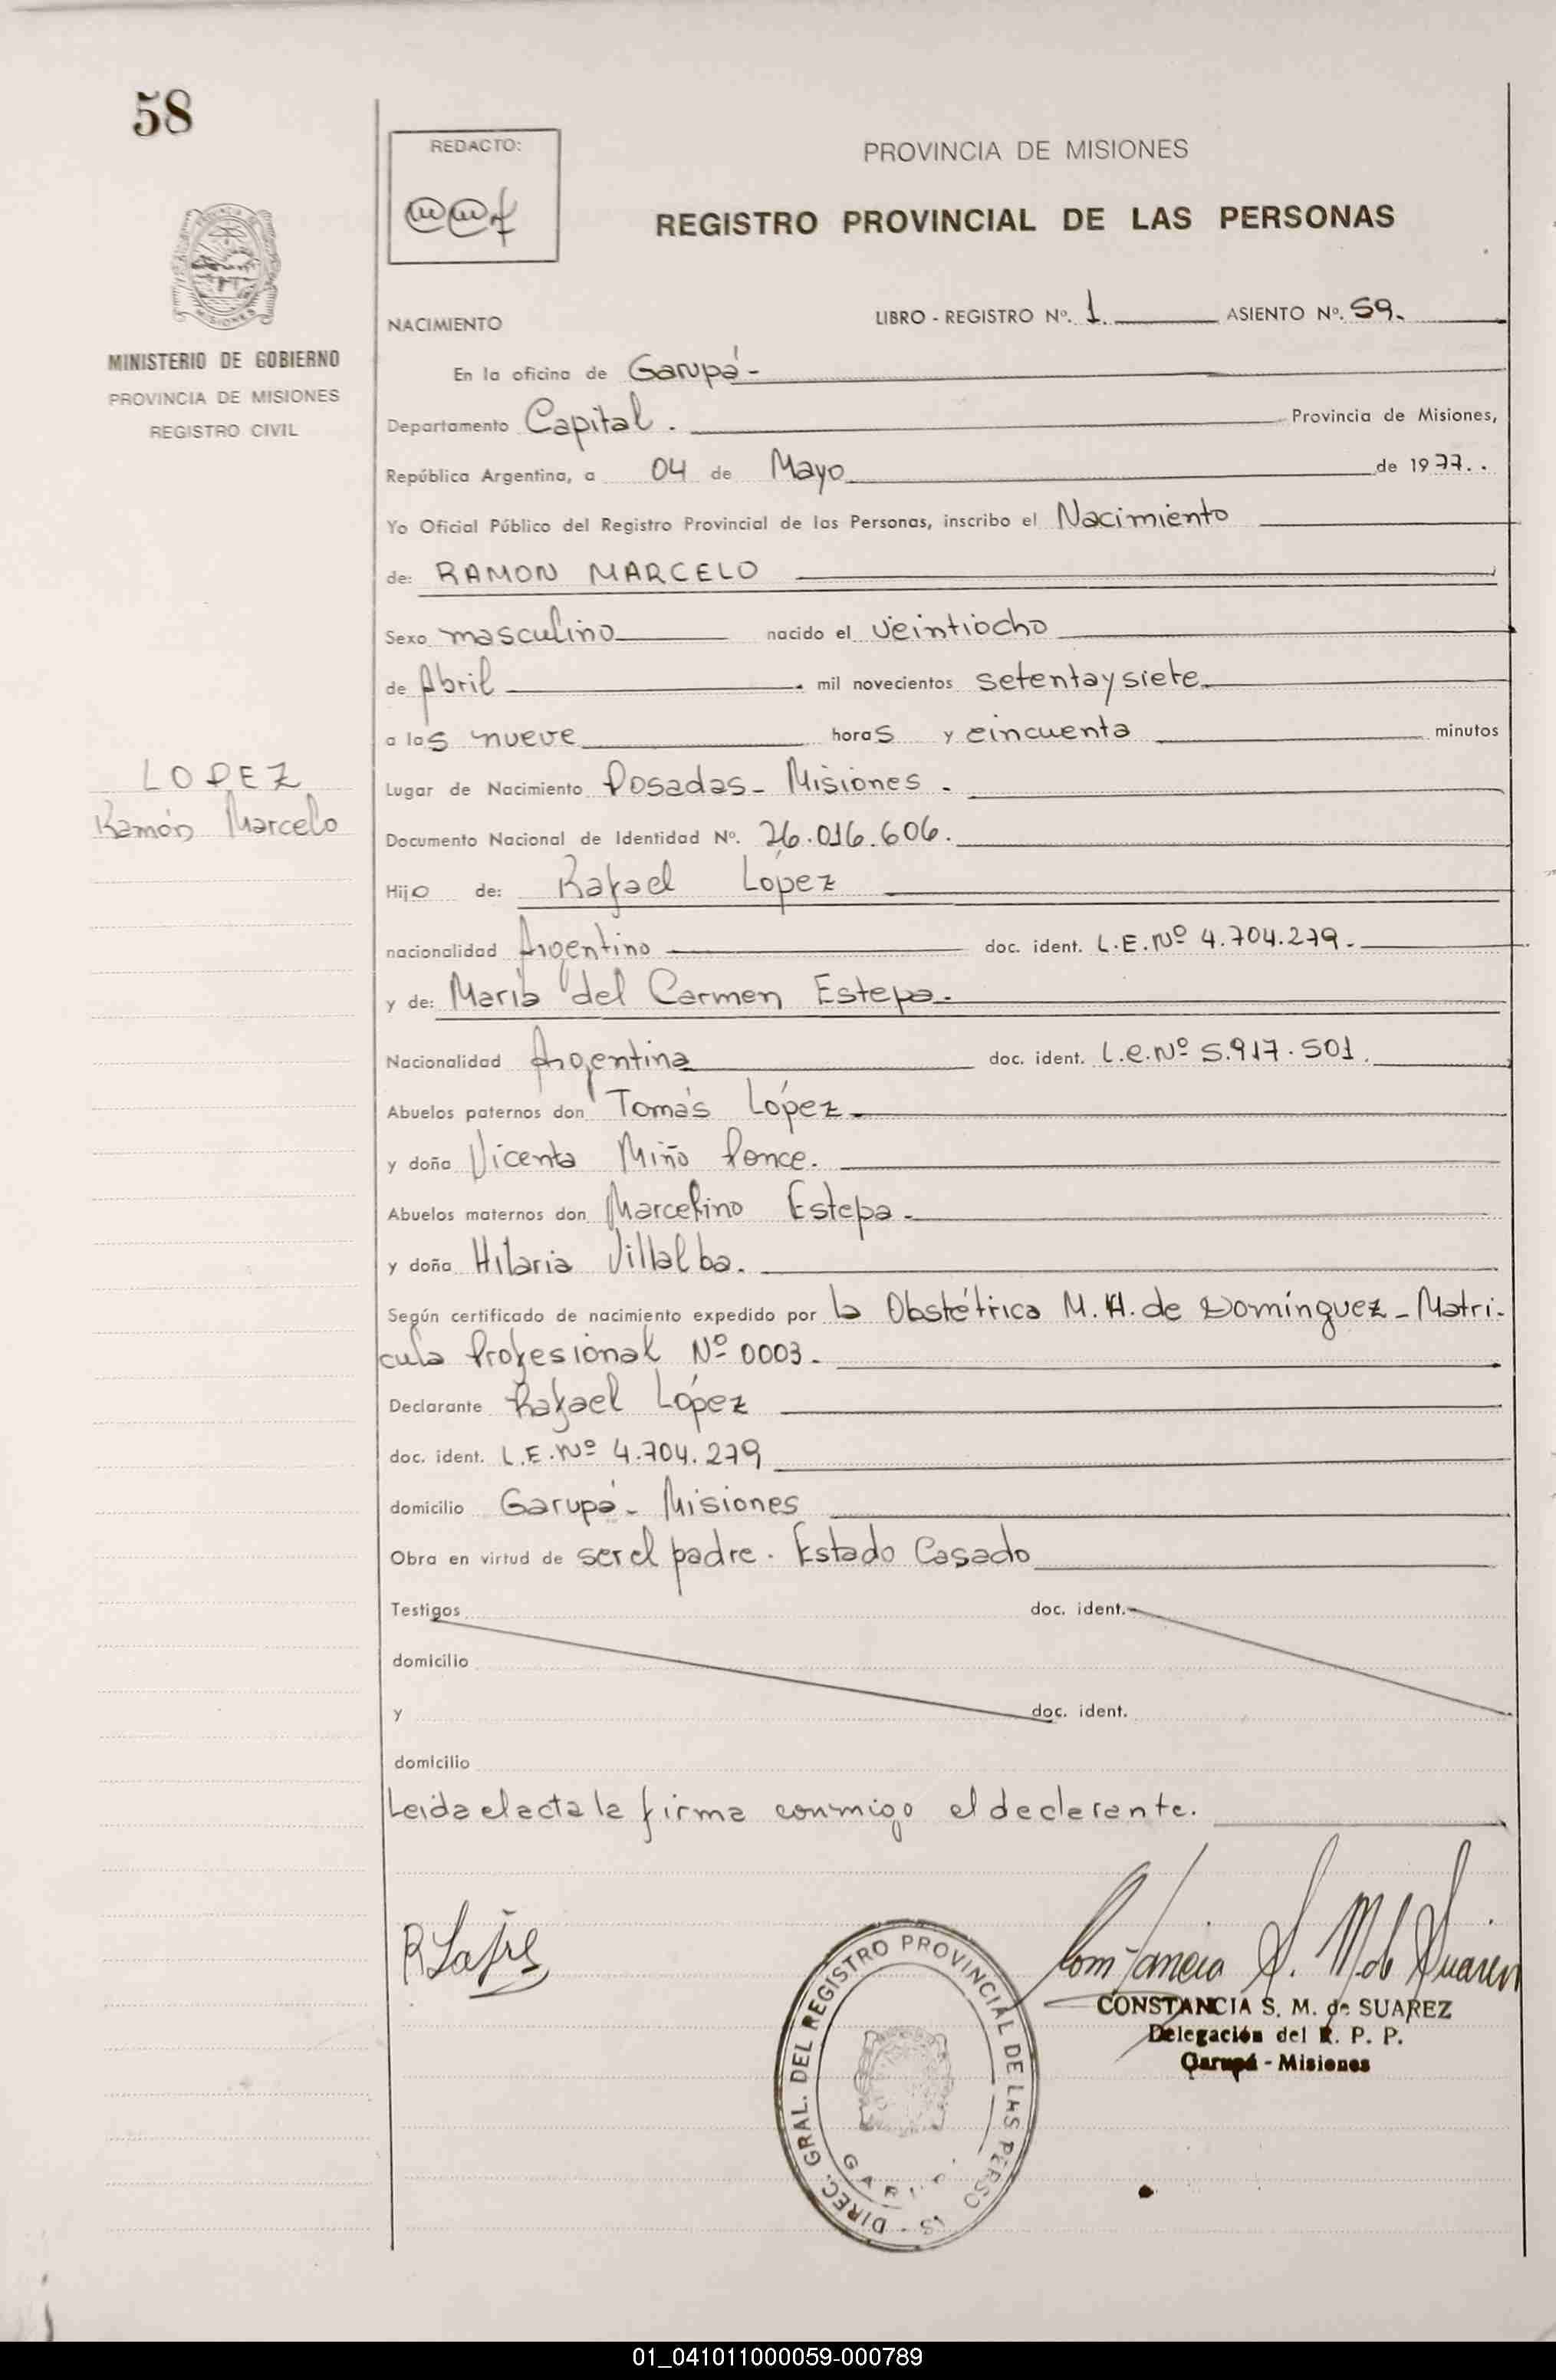 58
REDACTO:
PROVINCIA DE MISIONES
REGISTRO PROVINCIAL DE LAS PERSONAS
MISIONES
MINISTERIO DE GOBIERNO
PROVINCIA DE MISIONES
REGISTRO CIVIL
NACIMIENTO LIBRO - REGISTRO Nº. 1. ASIENTO Nº. 59.
En la oficina de Garupá -
Departamento Capital. Provincia de Misiones,
República Argentina, a 04 de Mayo de 1977..
Yo Oficial Público del Registro Provincial de las Personas, inscribo el Nacimiento
de: RAMON MARCELO
Sexo masculino nacido el veintiocho
de Abril mil novecientos setenta y siete
a las nueve horas y cincuenta minutos
LOPEZ
Ramón Marcelo
Lugar de Nacimiento Posadas - Misiones.
Documento Nacional de Identidad Nº. 26.016.606.
Hijo de: Rafael López
nacionalidad Argentino doc. ident. L.E. Nº 4.704.279.
y de: María del Carmen Estepa.
Nacionalidad Argentina doc. ident. L.e. Nº 5.917.501.
Abuelos paternos don Tomás López
y doña Vicenta Miño Ponce.
Abuelos maternos don Marcelino Estepa.
y doña Hilaria Villalba.
Según certificado de nacimiento expedido por la Obstétrica M. H. de Domínguez - Matri-
cula Profesional Nº 0003.
Declarante Rafael López
doc. ident. L.E. Nº 4.704.279
domicilio Garupá - Misiones
Obra en virtud de ser el padre. Estado Casado
Testigos doc. ident.
domicilio
y doc. ident.
domicilio
Leida el acta la firma conmigo el declarante.
Constancia S. M. de Suarez
CONSTANCIA S. M. de SUAREZ
Delegación del R. P. P.
Garupá - Misiones
DIREC. GRAL. DEL REGISTRO PROVINCIAL DE LAS PERSO
01_041011000059-000789